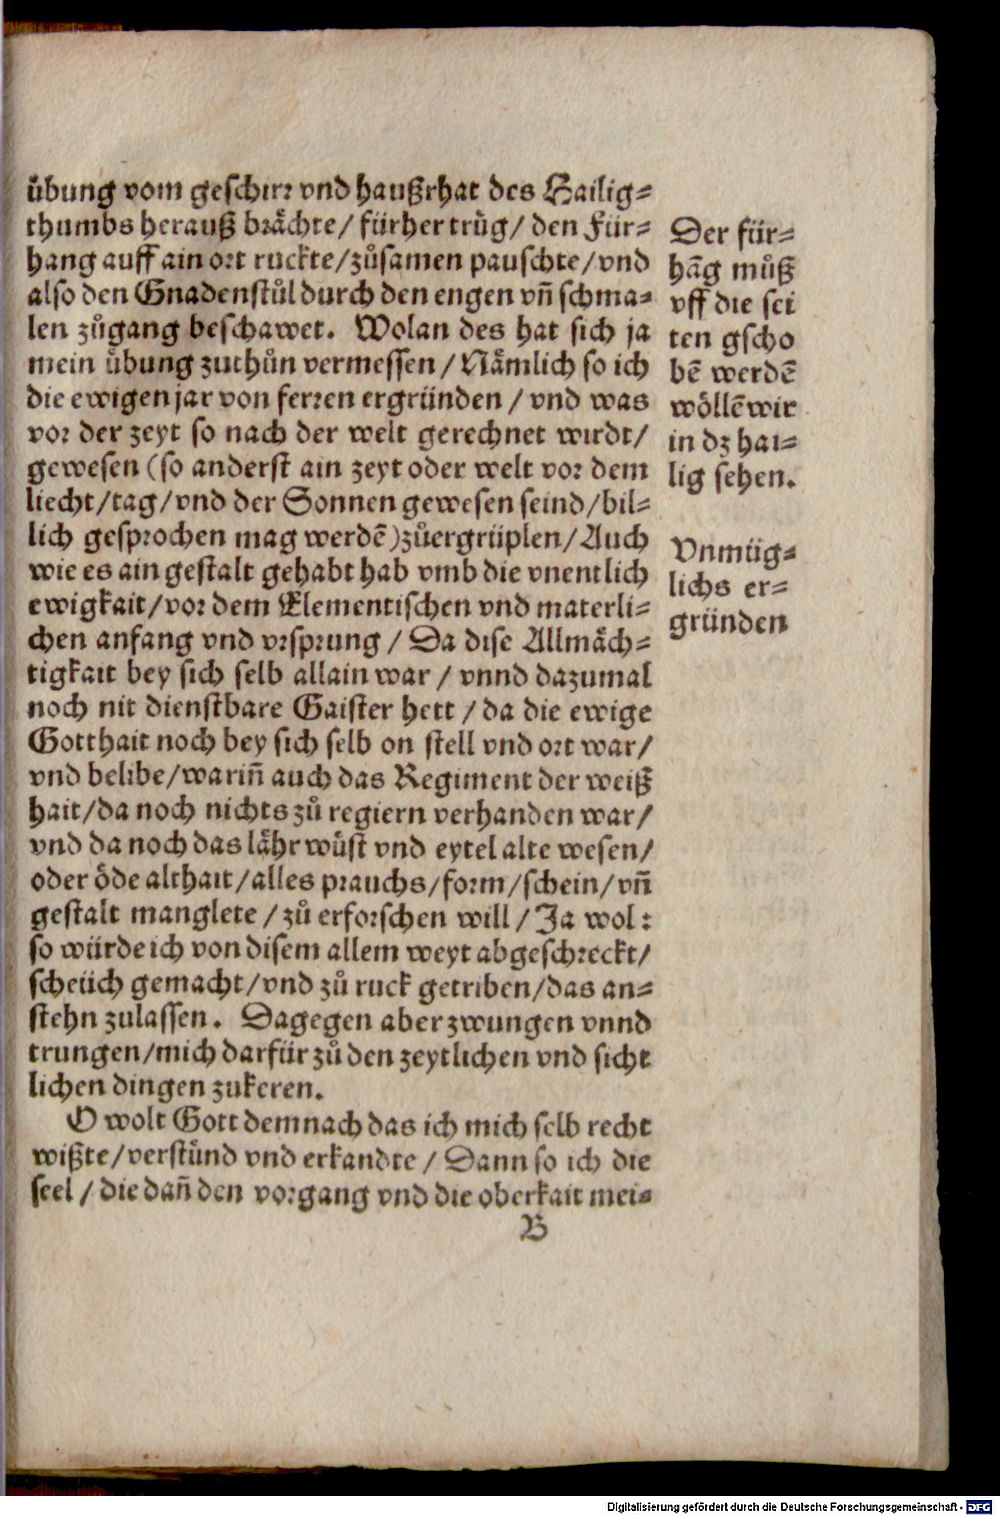 uͤbung vom geschirr vnd haußrhat des Hailig⸗
thumbs herauß braͤchte/ fürher truͤg/ den Für⸗
hang auff ain ort ruckte/zuͦsamen pauschte/vnd
also den Gnadenstuͤl durch den engen vñ schma⸗
len zuͦgang beschawet. Wolan des hat sich ja
mein uͤbung zuthuͦn vermessen / Naͤmlich so ich
die ewigen jar von ferren ergründen / vnd was
vor der zeyt so nach der welt gerechnet wirdt/
gewesen (so anderst ain zeyt oder welt vor dem
liecht/tag/vnd der Sonnen gewesen seind/bil⸗
lich gesprochen mag werdẽ)zuͦergrüplen/Auch
wie es ain gestalt gehabt hab vmb die vnentlich
ewigkait/vor dem Elementischen vnd materli⸗
chen anfang vnd vrsprung / Da dise Allmaͤch⸗
tigkait bey sich selb allain war / vnnd dazumal
noch nit dienstbare Gaister hett / da die ewige
Gotthait noch bey sich selb on stell vnd ort war/
vnd belibe/wariñ auch das Regiment der weiß
hait/da noch nichts zuͦ regiern verhanden war/
vnd da noch das laͤhr wuͤst vnd eytel alte wesen/
oder oͤde althait/alles prauchs/form/schein/vñ
gestalt manglete / zuͦ erforschen will / Ja wol:
so würde ich von disem allem weyt abgeschreckt/
scheüch gemacht/vnd zuͦ ruck getriben/das an⸗
stehn zulassen. Dagegen aber zwungen vnnd
trungen/mich darfür zuͦ den zeytlichen vnd sicht
lichen dingen zukeren.
O wolt Gott demnach das ich mich selb recht
wißte/verstuͤnd vnd erkandte / Dann so ich die
seel / die dañ den vorgang vnd die oberkait mei⸗
B
Der für⸗
hãg muͦß
vff die sei
ten gscho
bẽ werdẽ
woͤllẽ wir
in dz hai⸗
lig sehen.
Vnmüg⸗
lichs er⸗
gründen
Digitalisierung gefördert durch die Deutsche Forschungsgemeinschaft - DFG